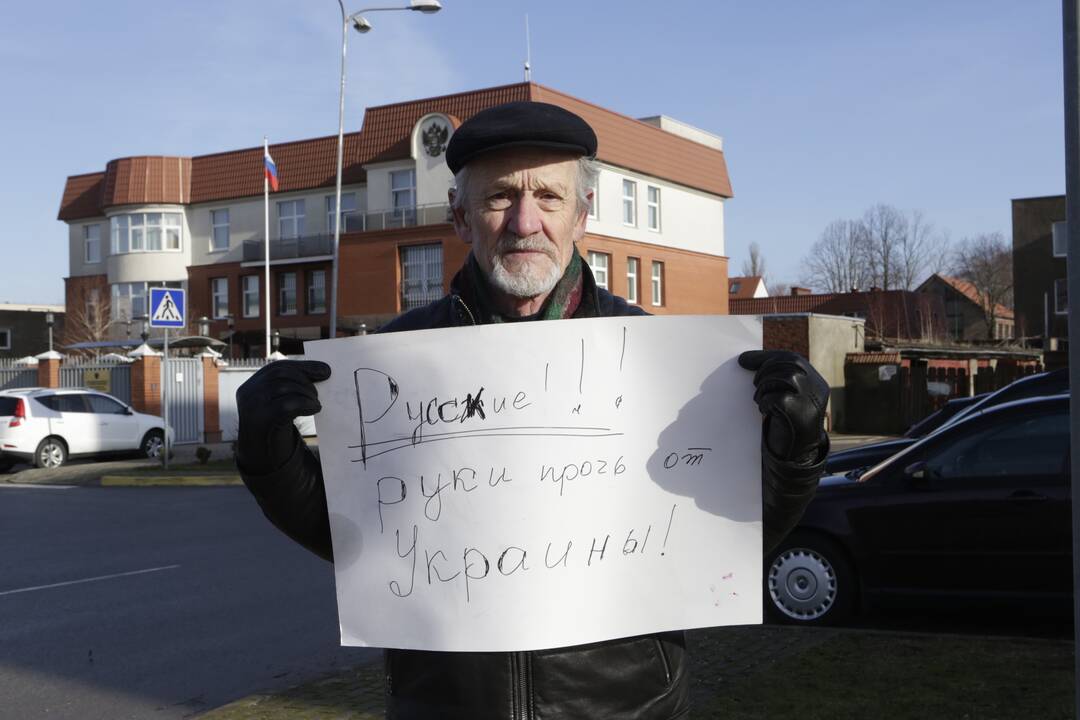 Русские!!!
руки прочь от
Украины!